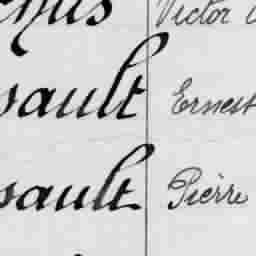 Victor
sault Ernest
sault Pierre